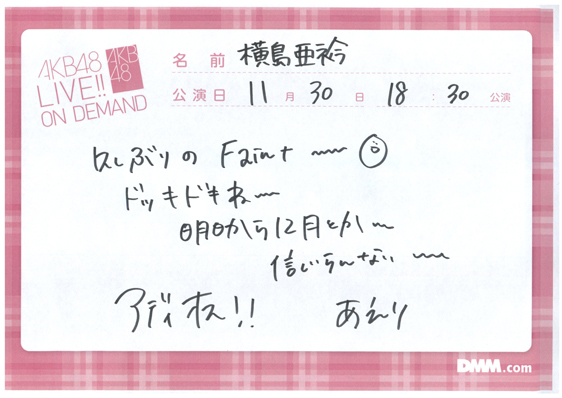 AKB48
LIVE!!
ON DEMAND
AKB
48
名前 横島亜衿
公演日 11月30日 18:30公演
久しぶりの Faint 〜
ドッキドキね〜
明日から12月とか〜
信じらんない〜
アディオス!!
あえり
DMM.com